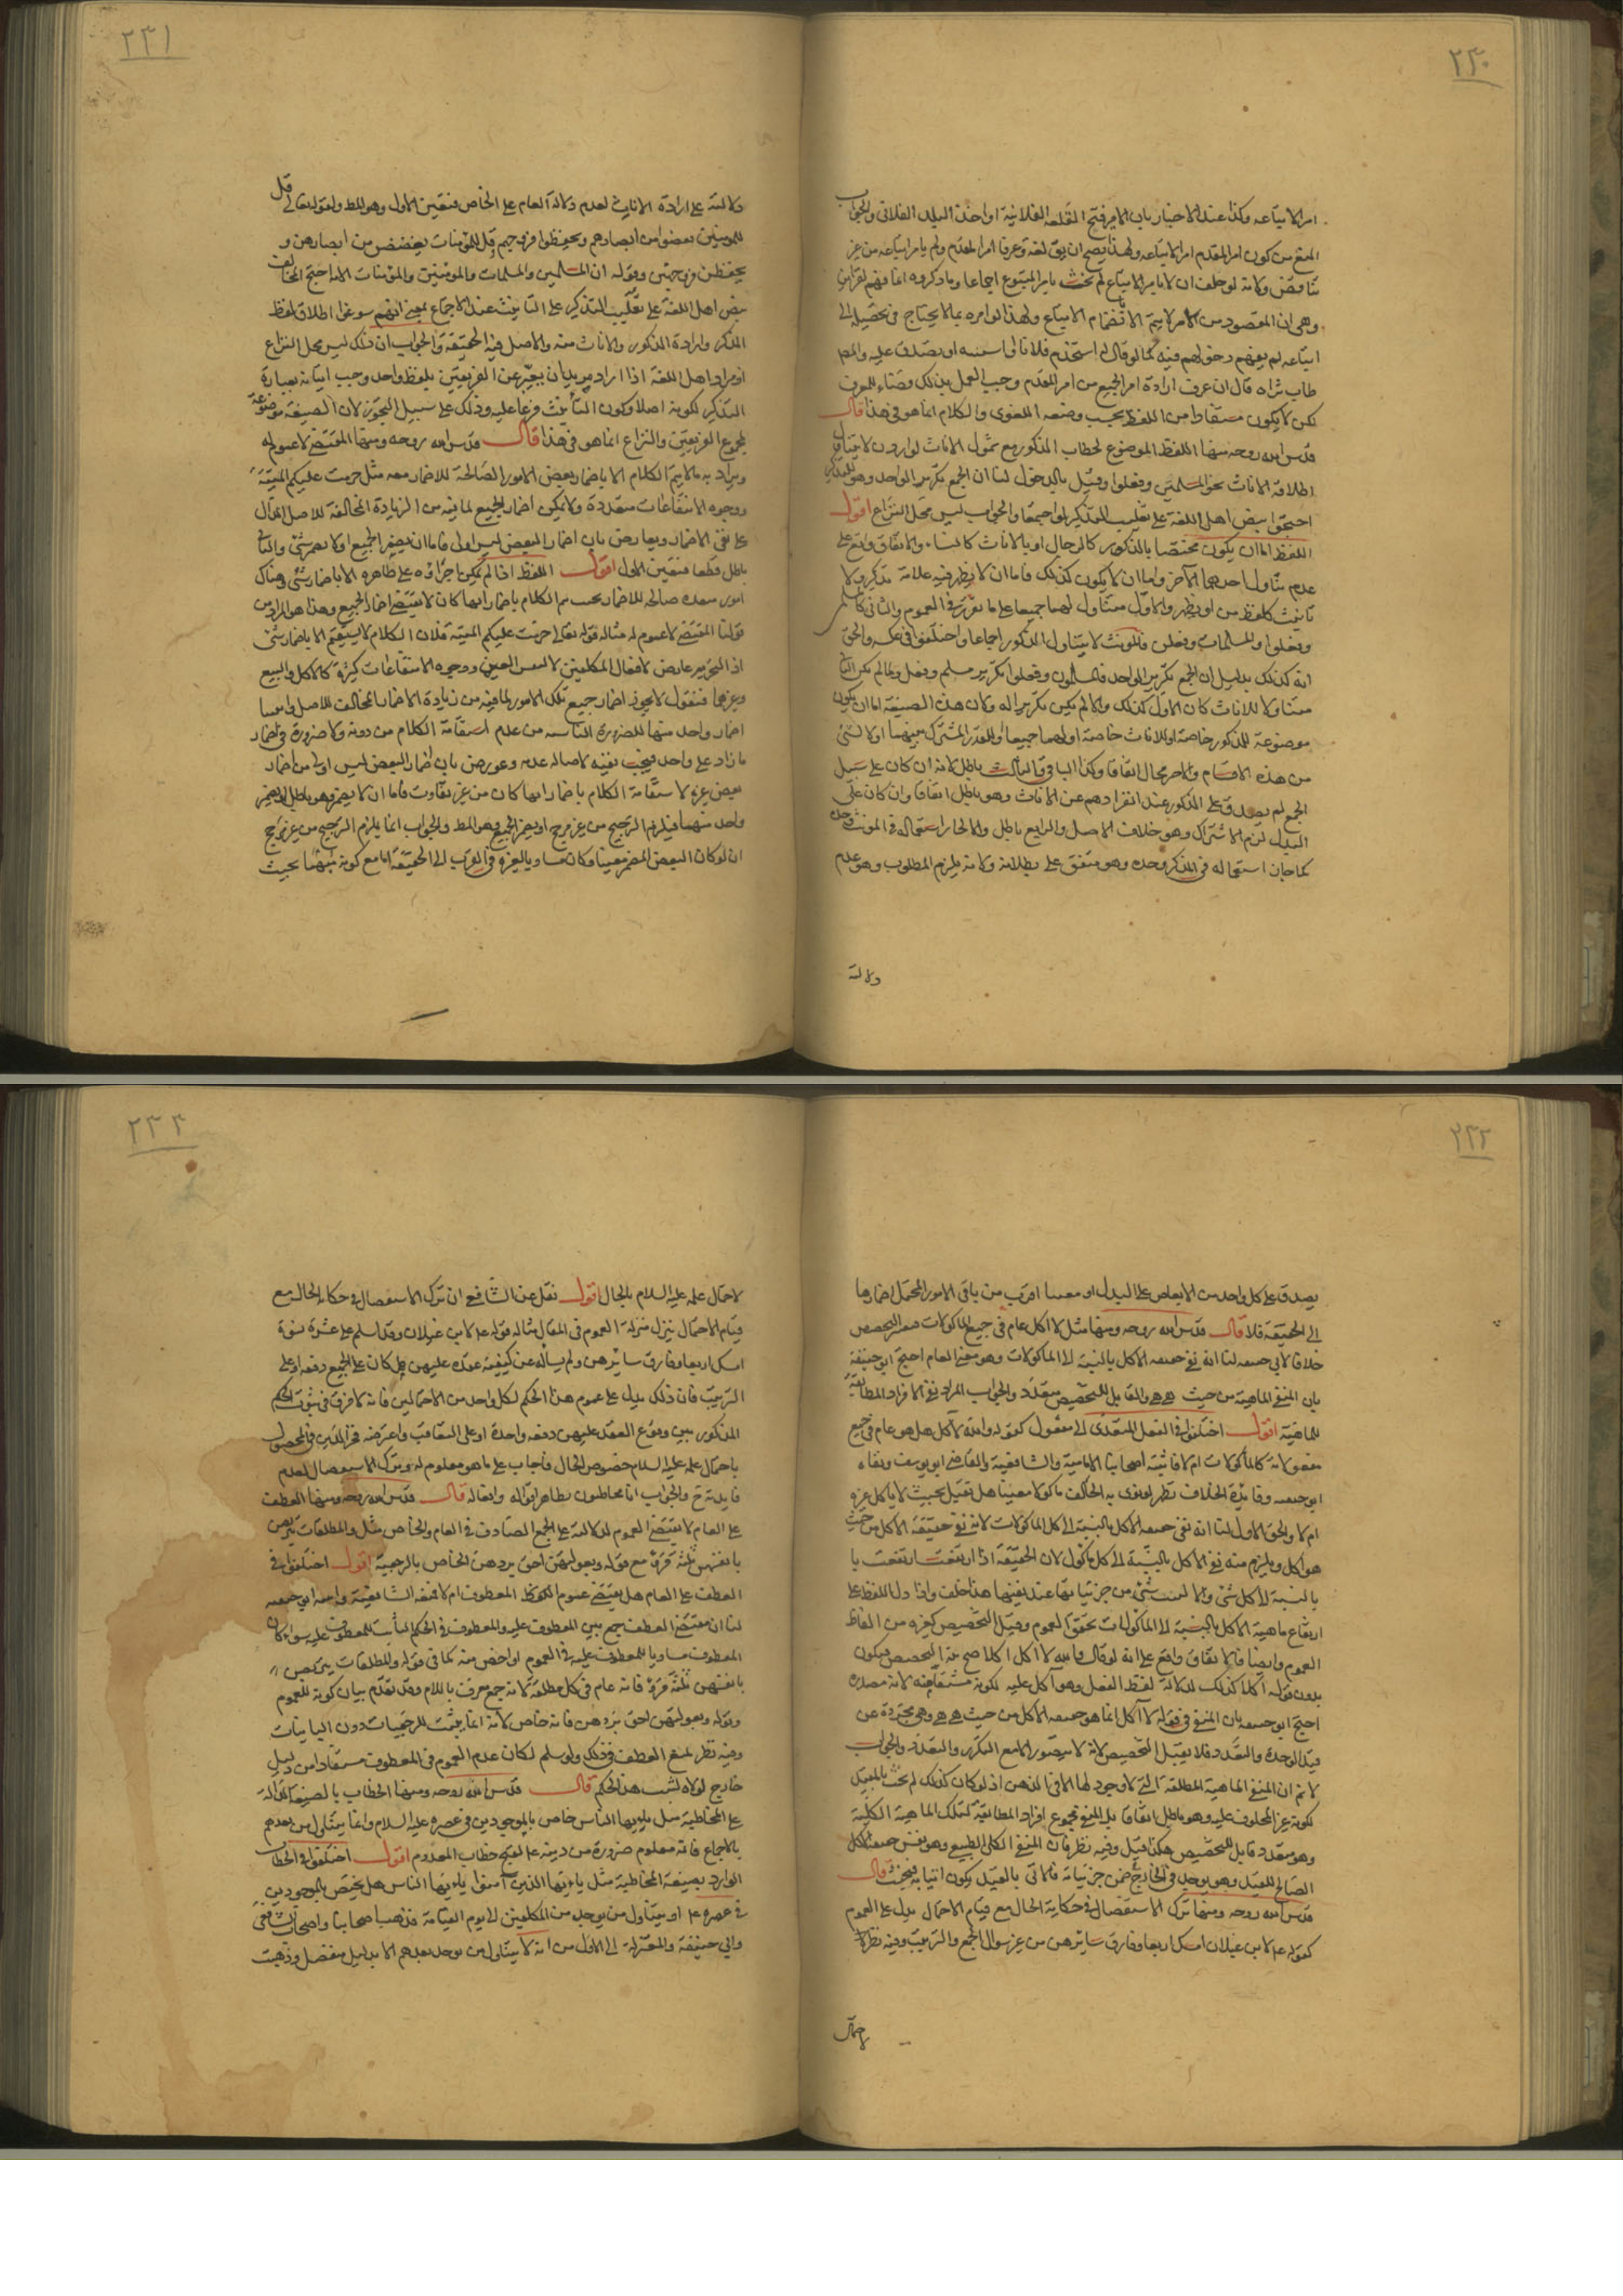 ٢٣٠
امرا لاتباعه وكذا عند الاخبار بان الامير فتح القلعة الفلانية او اخذ البلد الفلاني والجواب
المنع من كون امر المقدم امرا لاتباعه ولهذا يصح ان يق لغة وعرفا امر المقدم ولم يامر اتباعه من غير
تناقض ولانه لو حلف ان لا يامر الاتباع لم يحنث بامر المتبوع اجماعا وما ذكروه انما فهم لقراين
وهي ان المقصود من الامر لا يتم الا بانضمام الاتباع ولهذا لو امره بما لا يحتاج في تحصيله الى
اتباعه لم يفهم دخولهم فيه كما لو قال له استخدم فلانا او اسمه او تصدق عليه
قال ان عرف ارادة امر الجميع من امر المقدم وجب العمل بذلك قضاء للعرف
لكن لا يكون مستفادا من اللفظ بحسب وضعه اللغوي والكلام انما هو في هذا قال
قدس الله روحه ومنها اللفظ الموضوع لخطاب المذكور مع شمول الاناث لو اردن لا يتناول
اطلاقه الاناث نحو المسلمين وفعلوا وقيل بالدخول لنا ان الجمع تكرير الواحد وهو للمذكر
احتجوا بنص اهل اللغة على تغليب التذكير لو اجتمعا والجواب ليس محل النزاع اقول
اللفظ اما ان يكون مختصا بالذكور كالرجال او بالاناث كالنساء والاتفاق واقع على
عدم تناول احدهما الاخر واما ان لا يكون كذلك فاما ان لا يظهر فيه علامة تذكير ولا
تانيث كلفظ من او يظهر والاول متناول لهما جميعا على ما تقرر في العموم والثاني كالمسلمين
وفعلوا والمسلمات وفعلن فالمونث لا يتناول المذكور اجماعا واختلفوا في عكسه والحق
انه كذلك بدليل ان الجمع تكرير الواحد فالمسلمون وفعلوا تكرير مسلم وفعل ولما لم يكن الثاني
متناولا للاناث كان الاول كذلك والا لم يكن تكريرا له ولان هذه الصيغة اما ان يكون
موضوعة للمذكور خاصة او للاناث خاصة او لهما جميعا او للقدر المشترك بينهما او لا لشئ
من هذه الاقسام والاخر محال اتفاقا وكذا الباقي والثالث باطل لانه ان كان على سبيل
الجمع لم يصدق على الذكور عند انفرادهم عن الاناث وهو باطل اتفاقا وان كان على
البدل لزم الاشتراك وهو خلاف الاصل والرابع باطل والا لجاز استعماله في المونث وحده
كما جاز استعماله في المذكر وحده وهو متفق على بطلانه ولانه يلزم المطلوب وهو عدم
دلالته
٢٣١
دلالته على ارادة الاناث لعدم دلالة العام على الخاص فتعين الاول وهو المط ولقوله تعالى قل
للمومنين يغضوا من ابصارهم ويحفظوا فروجهم وقل للمؤمنات يغضضن من ابصارهن و
يحفظن فروجهن وقوله ان المسلمين والمسلمات والمومنين والمؤمنات الاية احتج المخالف
بنص اهل اللغة على تغليب التذكير على التانيث عند الاجتماع بمعنى انهم سوغوا اطلاق لفظ
المذكر وارادة المذكور والاناث منه والاصل فيه الحقيقة والجواب ان ذلك ليس محل النزاع
اذ مراد اهل اللغة اذا اراد مريد ان يعبر عن الفريقين بلفظ واحد وجب اتيانه بعبارة
التذكير لكونه اصلا وكون التأنيث فرعا عليه وذلك على سبيل التجوز لان الصيغة موضوعة
لمجموع الفريقين والنزاع انما هو في هذا قال قدس الله روحه ومنها المقتضي لا عموم له
ويراد به ما لا يتم الكلام الا باضمار بعض الامور الصالحة للاضمار معه مثل حرمت عليكم الميتة
ووجوه الانتفاعات متعددة ولا يمكن اضمار الجميع لما فيه من الزيادة المخالفة للاصل الدال
على نفي الاضمار ويعارض بان اضمار البعض ليس اولى فاما ان يضمر الجميع او لا يضمر شئ والثاني
باطل قطعا فتعين الاول اقول اللفظ اذا لم يمكن اجراؤه على ظاهره الا باضمار شئ وهناك
امور متعددة صالحة للاضمار بحسب يتم الكلام باضمار ايها كان لا يقتضي اضمار الجميع وهذا هو المراد من
قولنا المقتضي لا عموم له مثاله قوله تعالى حرمت عليكم الميتة فلان الكلام لا يستقيم الا باضمار شئ
اذ التحريم عارض لافعال المكلفين لا لنفس العين ووجوه الانتفاعات كثيرة كالاكل والبيع
وغيرهما فنقول لا يجوز اضمار جميع تلك الامور لما فيه من زيادة الاضمار المخالف للاصل
اضمار واحد منها للضرورة الناشئة من عدم استقامة الكلام من دونه ولا ضرورة في اضمار
ما زاد على واحد فيجب نفيه لاصالة عدمه وعورض بان اضمار البعض ليس اولى من اضمار
بعض غيره لاستقامة الكلام باضمار ايها كان من غير تفاوت فاما ان لا يضمر وهو باطل او يضمر
واحد منهما فيلزم الترجيح من غير مرجح او يضمر الجميع وهو المط والجواب انما يلزم الترجيح من غير مرجح
ان لو كان البعض المضمر معينا وكان مساويا لغيره في القرب الى الحقيقة اما مع كونه مبهما بحيث
٢٣٢
يصدق على كل واحد من الابعاض على البدل او معينا اقرب من باقي الامور المحتمل اضمارها
الى الحقيقة فلا قال قدس الله روحه ومنها مثل لا اكل عام في جميع الماكولات فيقبل التخصيص
خلافا لابي حنيفة لنا انه نفي حقيقة الاكل بالنسبة الى الماكولات وهو معنى العام احتج ابو حنيفة
بان المنفي الماهية من حيث هي هي والقابل للتخصيص متعدد والجواب المراد نفي الافراد المطابقة
للماهية اقول اختلفوا في الفعل المتعدي الى مفعول كقوله والله لا آكل هل هو عام في جميع
مفعولاته كالمأكولات ام لا فاثبته اصحابنا الامامية والشافعية والقاضي ابو يوسف ونفاه
ابو حنيفة وفائدة الخلاف تظهر لو نوى به الحالف ماكولا معينا هل تقبل بحيث لا ياكل غيره
ام لا والحق الاول لنا انه نفى حقيقة الاكل بالنسبة الى كل الماكولات لانه نفى حقيقة الاكل من حيث
هو اكل ويلزم منه نفي الاكل بالنسبة الى كل ماكول لان الحقيقة اذا ارتفعت ارتفعت با
بالنسبة لاكل شئ والا لثبت شئ من جزئياتها عند نفيها هذا خلف واذا دل اللفظ على
ارتفاع ماهية الاكل بالنسبة الى الماكولات تحقق العموم وقبل التخصيص كغيره من الفاظ
العموم وايضا فالاتفاق واقع على انه لو قال والله لا آكل اكلا صح نية التخصيص فيكون
بدون قوله اكلا كذلك لدلالة لفظ الفعل وهو آكل عليه لكونه مشتقا منه لانه مصدره
احتج ابو حنيفة بان المنفي في قوله لا آكل انما هو حقيقة الاكل من حيث هي هي وهي مجردة عن
قيد الوحدة والتعدد فلا يقبل التخصيص لانه لا يتصور الا مع التكرر والتعدد والجواب
لا نم ان المنفي الماهية المطلقة التي لا وجود لها الا في الذهن اذ لو كان كذلك لم يحنث بالمقيد
لكونه غير المحلوف عليه وهو باطل اتفاقا بل المنفي مجموع افراد المطابقة لتلك الماهية الكلية
وهو متعدد قابل للتخصيص هكذا قيل وفيه نظر فان المنفي الكلي الطبيعي وهو نفس حقيقة الاكل
الصالح للتقييد وهو يوجد في الخارج في ضمن جزئياته فالاتي بالمقيد يكون اتيا به فيحنث قال
قدس الله روحه ومنها ترك الاستفصال في حكاية الحال مع قيام الاحتمال يدل على العموم
كقوله على لابن غيلان امسك اربعا وفارق سائرهن من غير سؤال الجمع والترتيب وفيه نظر لا
لاحتمال
٢٣٣
لاحتمال علمه عليه السلام بالحال اقول نقل عن الشافعي ان ترك الاستفصال في حكاية الحال مع
قيام الاحتمال ينزل منزلة العموم في المقال مثاله قوله على لابن غيلان وقد اسلم على عشرة نسوة
امسك اربعا وفارق سائرهن ولم يسأله عن كيفية عقده عليهن هل كان على الجميع دفعة او على
الترتيب فان ذلك يدل على عموم هذا الحكم لكل واحد من الاحتمالين فانه لا فرق في ثبوت الحكم
المذكور بين وقوع العقد عليهن دفعة واحدة او على التعاقب واعترضه فخر الدين في المحصول
باحتمال علمه عليه السلام خصوص الحال فاجاب على ما هو معلوم له وترك الاستفصال لعدم
فايدته ح والجواب انا مخاطبون بظاهر اقواله وافعاله قال قدس الله روحه ومنها العطف
على العام لا يقتضي العموم لدلالته على الجمع الصادق في العام والخاص مثل والمطلقات يتربصن
بانفسهن ثلثة قروء مع قوله وبعولتهن احق بردهن الخاص بالرجعية اقول اختلفوا في
العطف على العام هل يقتضي عموم المعطوف ام لا فنفته الشافعية واثبته ابو حنيفة
لنا ان مقتضى العطف جمع بين المعطوف عليه والمعطوف في الحكم الثابت للمعطوف عليه سواء كان
المعطوف مساويا للمعطوف عليه في العموم او اخص منه كما في قوله والمطلقات يتربصن
بانفسهن ثلثة قروء فانه عام في كل مطلقة لانه جمع معرف باللام وقد تقدم بيان كونه للعموم
وقوله وبعولتهن احق بردهن فانه خاص لانه انما يثبت للرجعيات دون الباينات
وفيه نظر لمنع العطف في ذلك ولو سلم لكان عدم العموم في المعطوف مستفادا من دليل
خارج لولاه لثبت هذا الحكم قال قدس الله روحه ومنها الخطاب بالصيغة الدالة
على المخاطبة مثل يا ايها الناس خاص بالموجودين في عصره عليه السلام وانما يتناول من بعدهم
بالاجماع فانه معلوم ضرورة من دينه على لقبح خطاب المعدوم اقول اختلفوا في الخطاب
الوارد بصيغة المخاطبة مثل يا ايها الذين آمنوا يا ايها الناس هل يختص بالموجودين
في عصره على او يتناول من يوجد من المكلفين الى يوم القيامة فذهب اصحابنا واصحاب الشافعي
وابي حنيفة والمعتزلة الى الاول من انه لا يتناول من يوجد بعدهم الا بدليل منفصل وذهبت